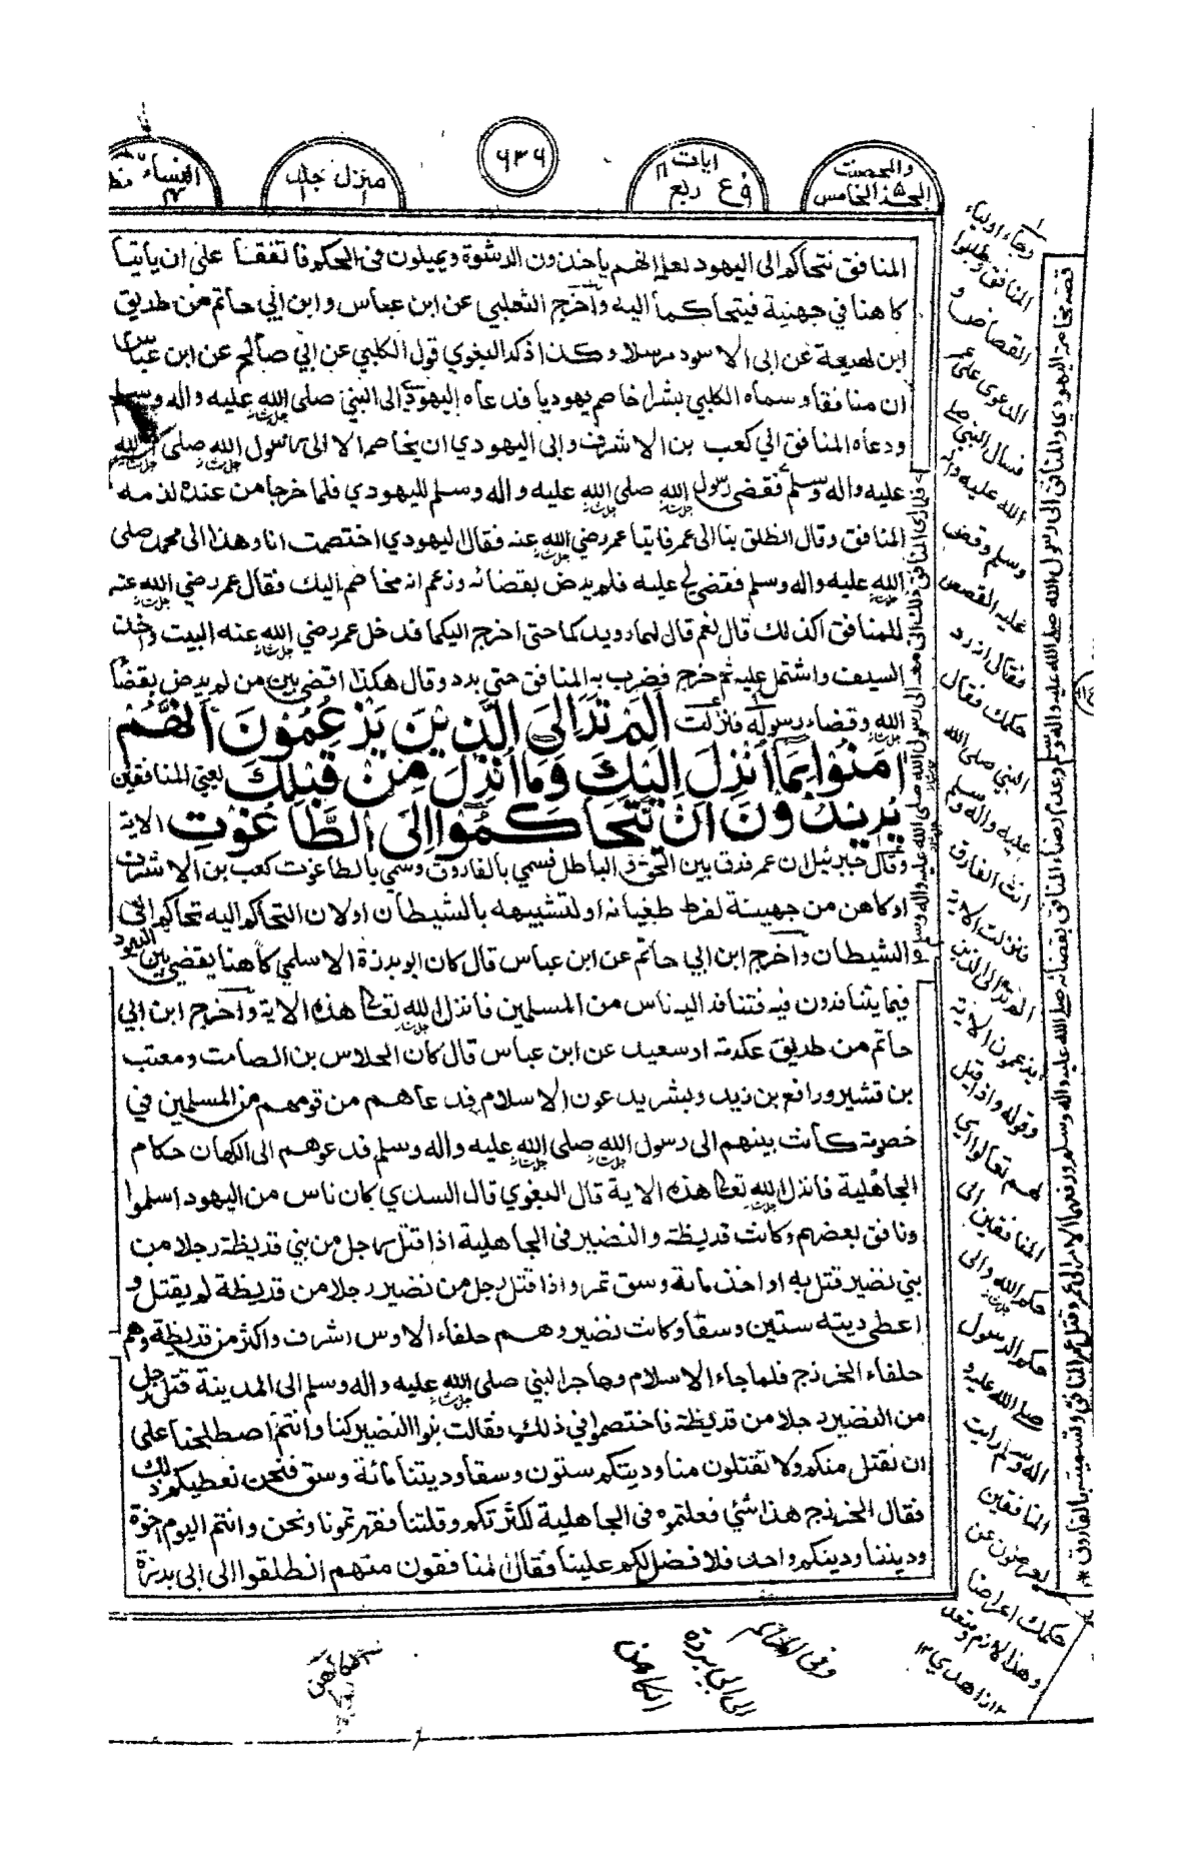 والمحصنت
الجزء الخامس
ايات
ع ربع
٦٣٦
منزل جلد
النساء
المنافق نتحاكم الى اليهود لعلمه انهم ياخذون الرشوة ويميلون فى الحكم فاتفقنا على ان ياتيا
كاهنا في جهنية فيتحاكما اليه واخرج الثعلبي عن ابن عباس وابن ابي حاتم من طريق
ابن لهيعة عن ابى الاسود مرسلا وكذا ذكر البغوي قول الكلبي عن ابي صالح عن ابن عباس
ان منافقا وسماه الكلبي بشرا خاصم يهوديا فدعاه اليهودي الى النبي صلى الله عليه واله وسلم
ودعاه المنافق الي كعب بن الاشرف وابى اليهودي ان يخاصم الا الى رسول الله صلى الله
عليه واله وسلم فقضى رسول الله صلى الله عليه واله وسلم لليهودي فلما خرجا من عنده لزمه
المنافق وقال انطلق بنا الى عمر فاتيا عمر رضي الله عنه فقال اليهودي اختصمت انا وهذا الى محمد صلى
الله عليه واله وسلم فقضى لي عليه فلم يرض بقضائه وزعم انه مخاصم اليك فقال عمر رضي الله عنه
للمنافق اكذلك قال نعم قال لهما رويدكما حتى اخرج اليكما فدخل عمر رضي الله عنه البيت واخذ
السيف واشتمل عليه ثم خرج فضرب به المنافق حتى برد وقال هكذا اقضي بين من لم يرض بقضاء
الله وقضاء رسوله فنزلت اَلَمْ تَرَ اِلَى الَّذِيْنَ يَزْعُمُوْنَ اَنَّهُمْ
اٰمَنُوْا بِمَا اُنْزِلَ اِلَيْكَ وَمَا اُنْزِلَ مِنْ قَبْلِكَ يعني المنافقين
يُرِيْدُوْنَ اَنْ يَّتَحَاكَمُوْا اِلَى الطَّاغُوْتِ الاية
وقال جبرئيل ان عمر فرق بين الحق والباطل فسمي بالفاروق وسمي بالطاغوت كعب بن الاشرف
اوكاهن من جهينة لفرط طغيانه او لتشبيهه بالشيطان اولان التحاكم اليه تحاكم الى
الشيطان واخرج ابن ابي حاتم عن ابن عباس قال كان ابو بردة الاسلمي كاهنا يقضي بين اليهود
فيما يتنافرون فيه فتنافر اليه ناس من المسلمين فانزل الله تعالى هذه الاية واخرج ابن ابي
حاتم من طريق عكرمة او سعيد عن ابن عباس قال كان الجلاس بن الصامت ومعتب
بن قشير ورافع بن زيد وبشر يدعون الاسلام فدعاهم من قومهم من المسلمين في
خصومة كانت بينهم الى رسول الله صلى الله عليه واله وسلم فدعوهم الى الكهان حكام
الجاهلية فانزل الله تعالى هذه الاية قال البغوي قال السدي كان ناس من اليهود اسلموا
ونافق بعضهم وكانت قريظة والنضير فى الجاهلية اذا قتل رجل من بني قريظة رجلا من
بني نضير قتل به او اخذ مائة وسق تمر واذا قتل رجل من نضير رجلا من قريظة لم يقتل و
اعطى ديته ستين وسقا وكانت نضير وهم حلفاء الاوس اشرف واكثر من قريظة وهم
حلفاء الخزرج فلما جاء الاسلام وهاجر النبي صلى الله عليه واله وسلم الى المدينة قتل رجل
من النضير رجلا من قريظة فاختصموا في ذلك فقالت بنوا النضير كنا وانتم اصطلحنا على
ان نقتل منكم ولا تقتلون منا وديتكم ستون وسقا وديتنا مائة وسق فنحن نعطيكم ذلك
فقال الخزرج هذا شئ فعلتموه فى الجاهلية لكثرتكم وقلتنا فقهرتمونا ونحن وانتم اليوم اخوة
وديننا ودينكم واحد فلا فضل لكم علينا فقال المنافقون منهم انطلقوا الى ابي بردة
وجاء اولياء
المنافق وطلبوا
القصاص و
الدعوى على عمر
فسال النبي صلى
الله عليه واله
وسلم وقص
عليه القصص
فقال انه رد
حكمك فقال
النبي صلى الله
عليه واله وسلم
انت الفارق
فنزلت الاية
الم تر الى الذين
يزعمون الاية
وقوله واذا قيل
لهم تعالوا اي
المنافقين الى
حكم الله والى
حكم الرسول
صلى الله عليه و
اله وسلم رايت
المنافقين
يعرضون عن
حكمك اعراضا
وهذا لازم ومتعد
١٢ زاهدي ١٢
الى ابي بردة
الكاهن